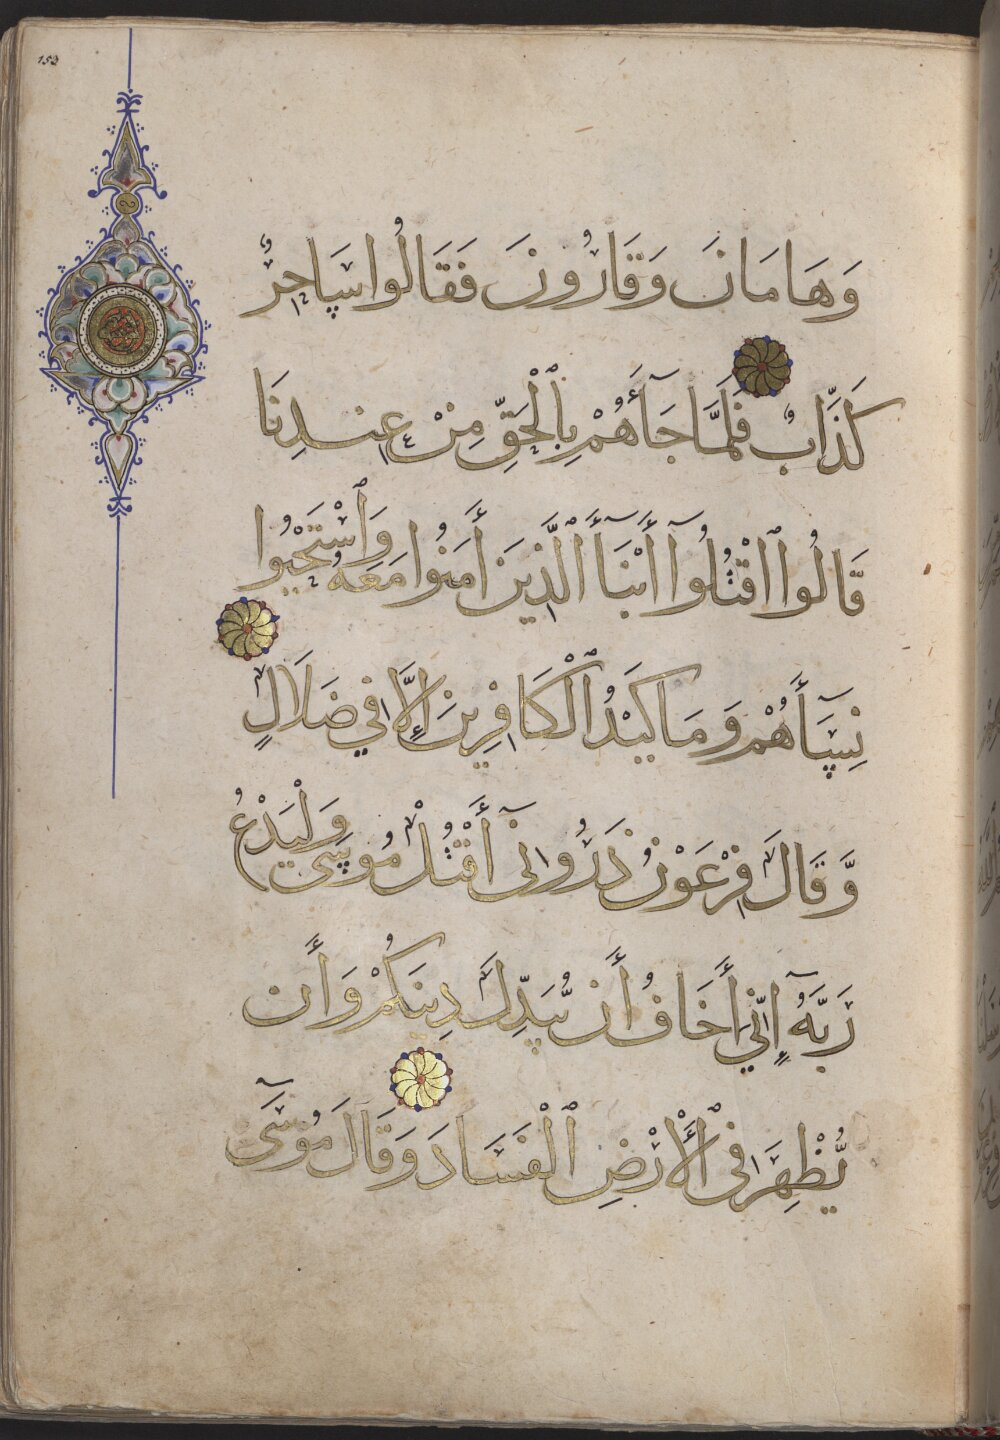 153
وَهَامَانَ وَقَارُونَ فَقَالُوا سَاحِرٌ
كَذَّابٌ فَلَمَّا جَآءَهُمْ بِٱلْحَقِّ مِنْ عِندِنَا
قَالُوا ٱقْتُلُوٓا أَبْنَآءَ ٱلَّذِينَ أَمَنُوا مَعَهُ وَٱسْتَحْيُوا
نِسَآءَهُمْ وَمَا كَيْدُ ٱلْكَافِرِينَ إِلَّا فِي ضَلَالٍ
وَقَالَ فِرْعَوْنُ ذَرُونِىٓ أَقْتُلْ مُوسَى وَلْيَدْعُ
رَبَّهُٓ إِنِّي أَخَافُ أَن يُبَدِّلَ دِينَكُمْ وَأَن
يُظْهِرَ فِى ٱلْأَرْضِ ٱلْفَسَادَ وَقَالَ مُوسَىٓ